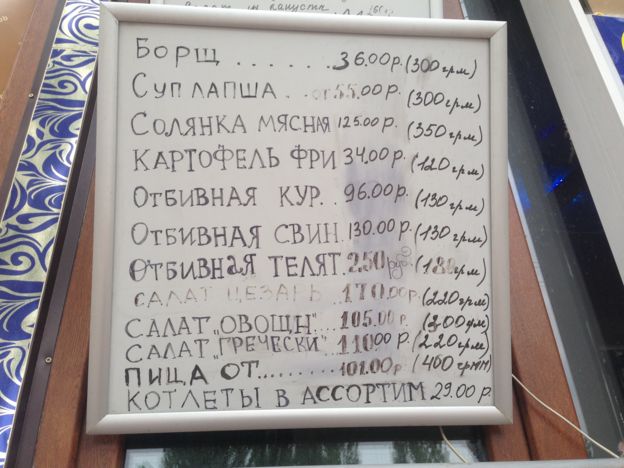 БОРЩ ....... 36.00 р. (300 грм)
СУП ЛАПША .. от 55.00 р. (300 грм)
СОЛЯНКА МЯСНАЯ 125.00 р. (350 грм)
КАРТОФЕЛЬ ФРИ 34.00 р. (120 грм)
ОТБИВНАЯ КУР. 96.00 р. (130 грм)
ОТБИВНАЯ СВИН. 130.00 р. (130 грм)
ОТБИВНАЯ ТЕЛЯТ. 250 руб (180 грм)
САЛАТ ЦЕЗАРЬ 170.00 р. (220 грм)
САЛАТ „ОВОЩН"... 105.00 р. (200 грм)
САЛАТ „ГРЕЧЕСКИ" 110.00 р. (220 грм)
ПИЦА ОТ......... 101.00 р. (400 грмм)
КОТЛЕТЫ В АССОРТИМ 29.00 р.